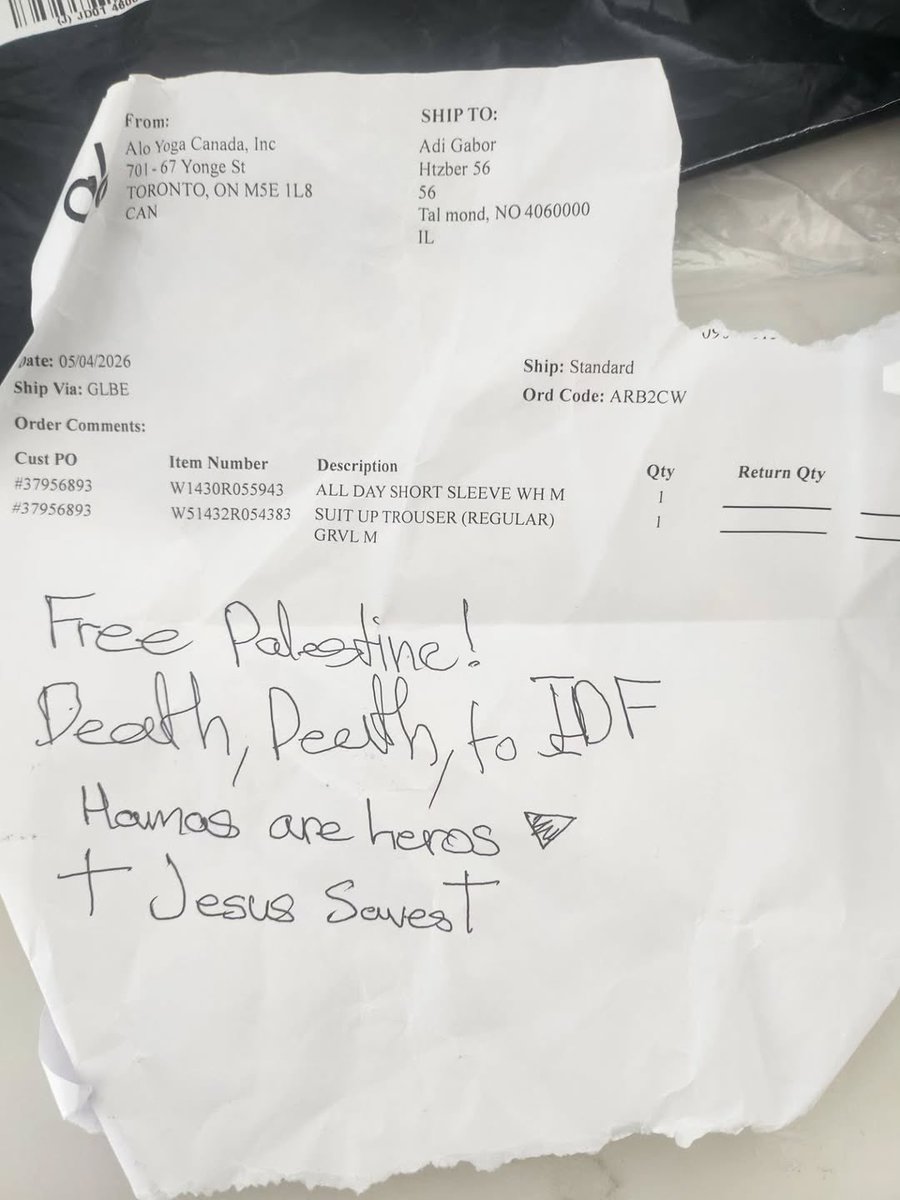 From:
Alo Yoga Canada, Inc
701-67 Yonge St
TORONTO, ON M5E 1L8
CAN
SHIP TO:
Adi Gabor
Htzber 56
56
Tal mond, NO 4060000
IL
Date: 05/04/2026
Ship Via: GLBE
Ship: Standard
Ord Code: ARB2CW
Order Comments:
Cust PO Item Number Description Qty Return Qty
#37956893 W1430R055943 ALL DAY SHORT SLEEVE WH M 1
#37956893 W51432R054383 SUIT UP TROUSER (REGULAR) 1
GRVL M
Free Palestine!
Death, Death, to IDF
Hamas are heros
Jesus Saves